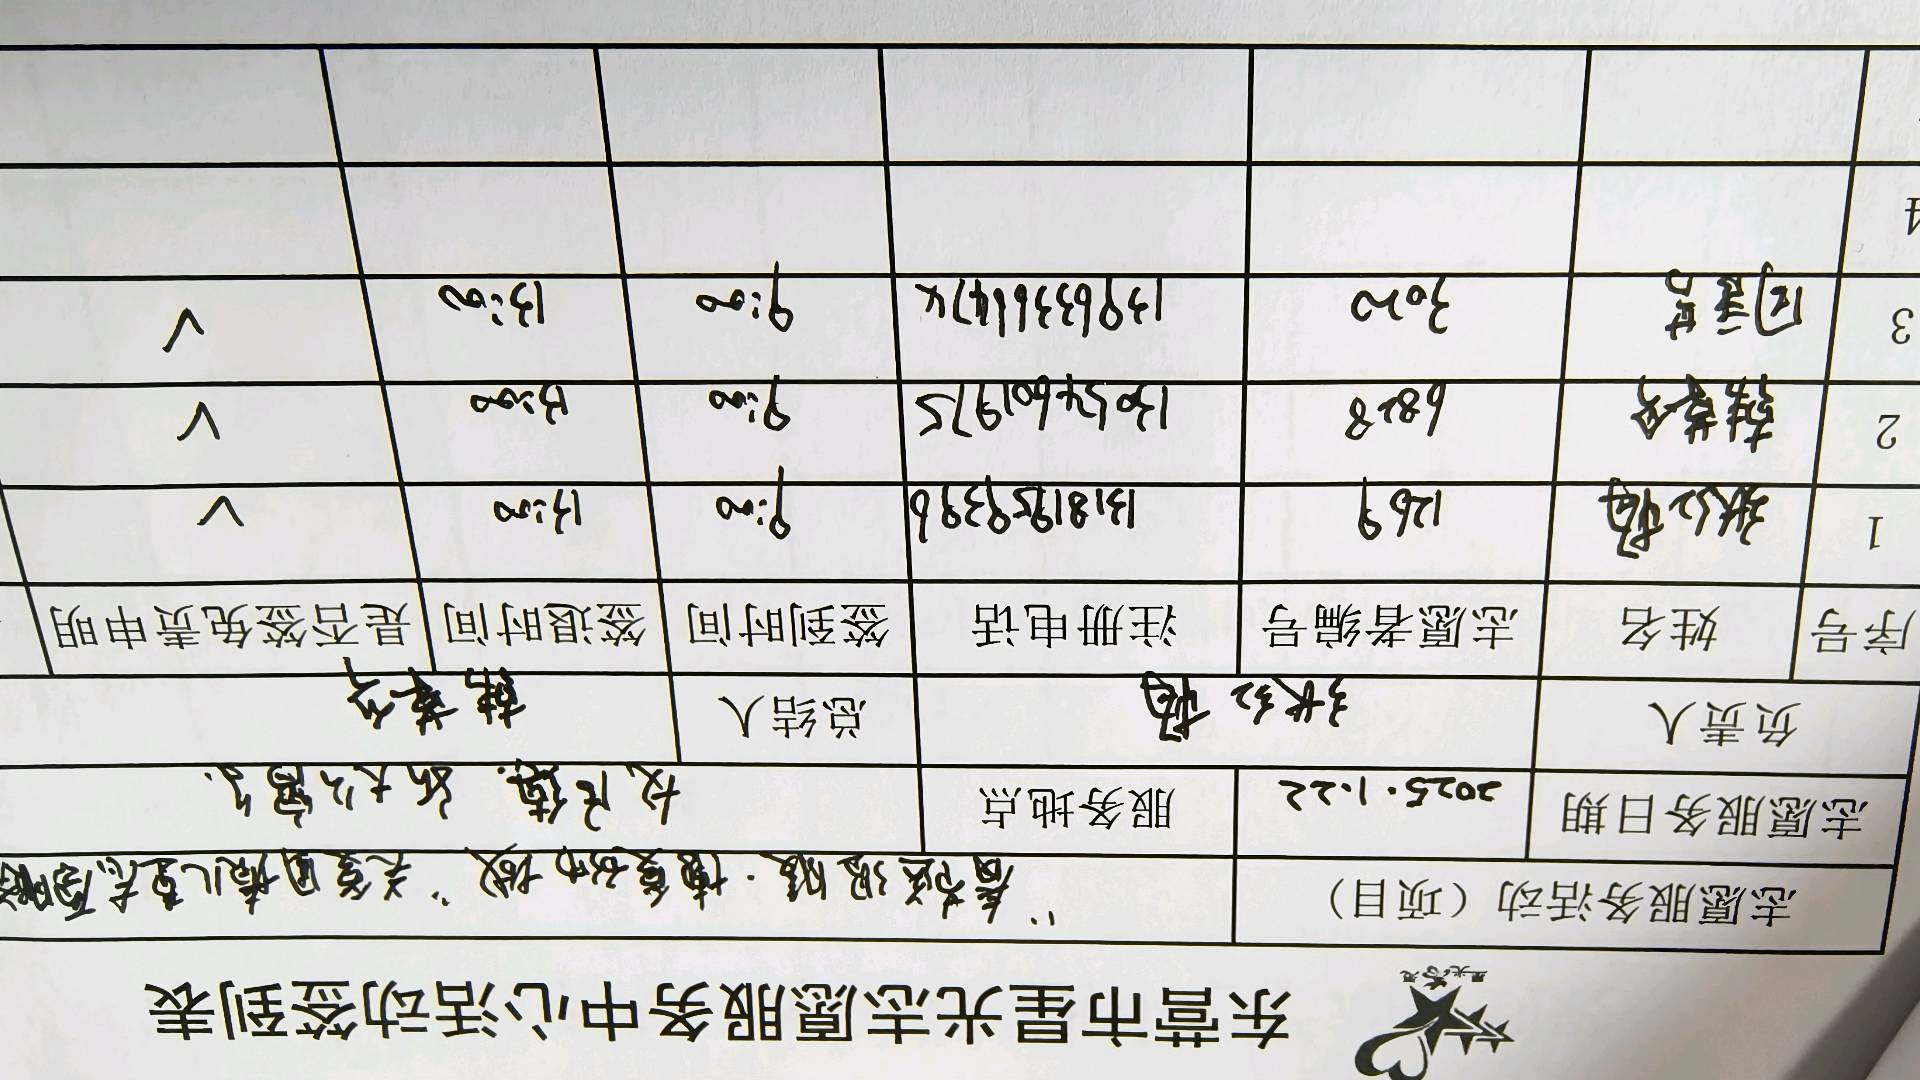 东营市星光志愿服务中心活动签到表
志愿服务活动（项目） 关爱困境儿童志愿服
志愿服务日期 2025.1.22 服务地点
负责人 张红梅 总结人
序号 姓名 志愿者编号 注册电话 签到时间 签退时间 是否签免责申明
1 张红梅 1269 13181959396 9:00 13:00 √
2 6828 13054601975 9:00 13:00 √
3 13963361474 9:00 13:00 √
4